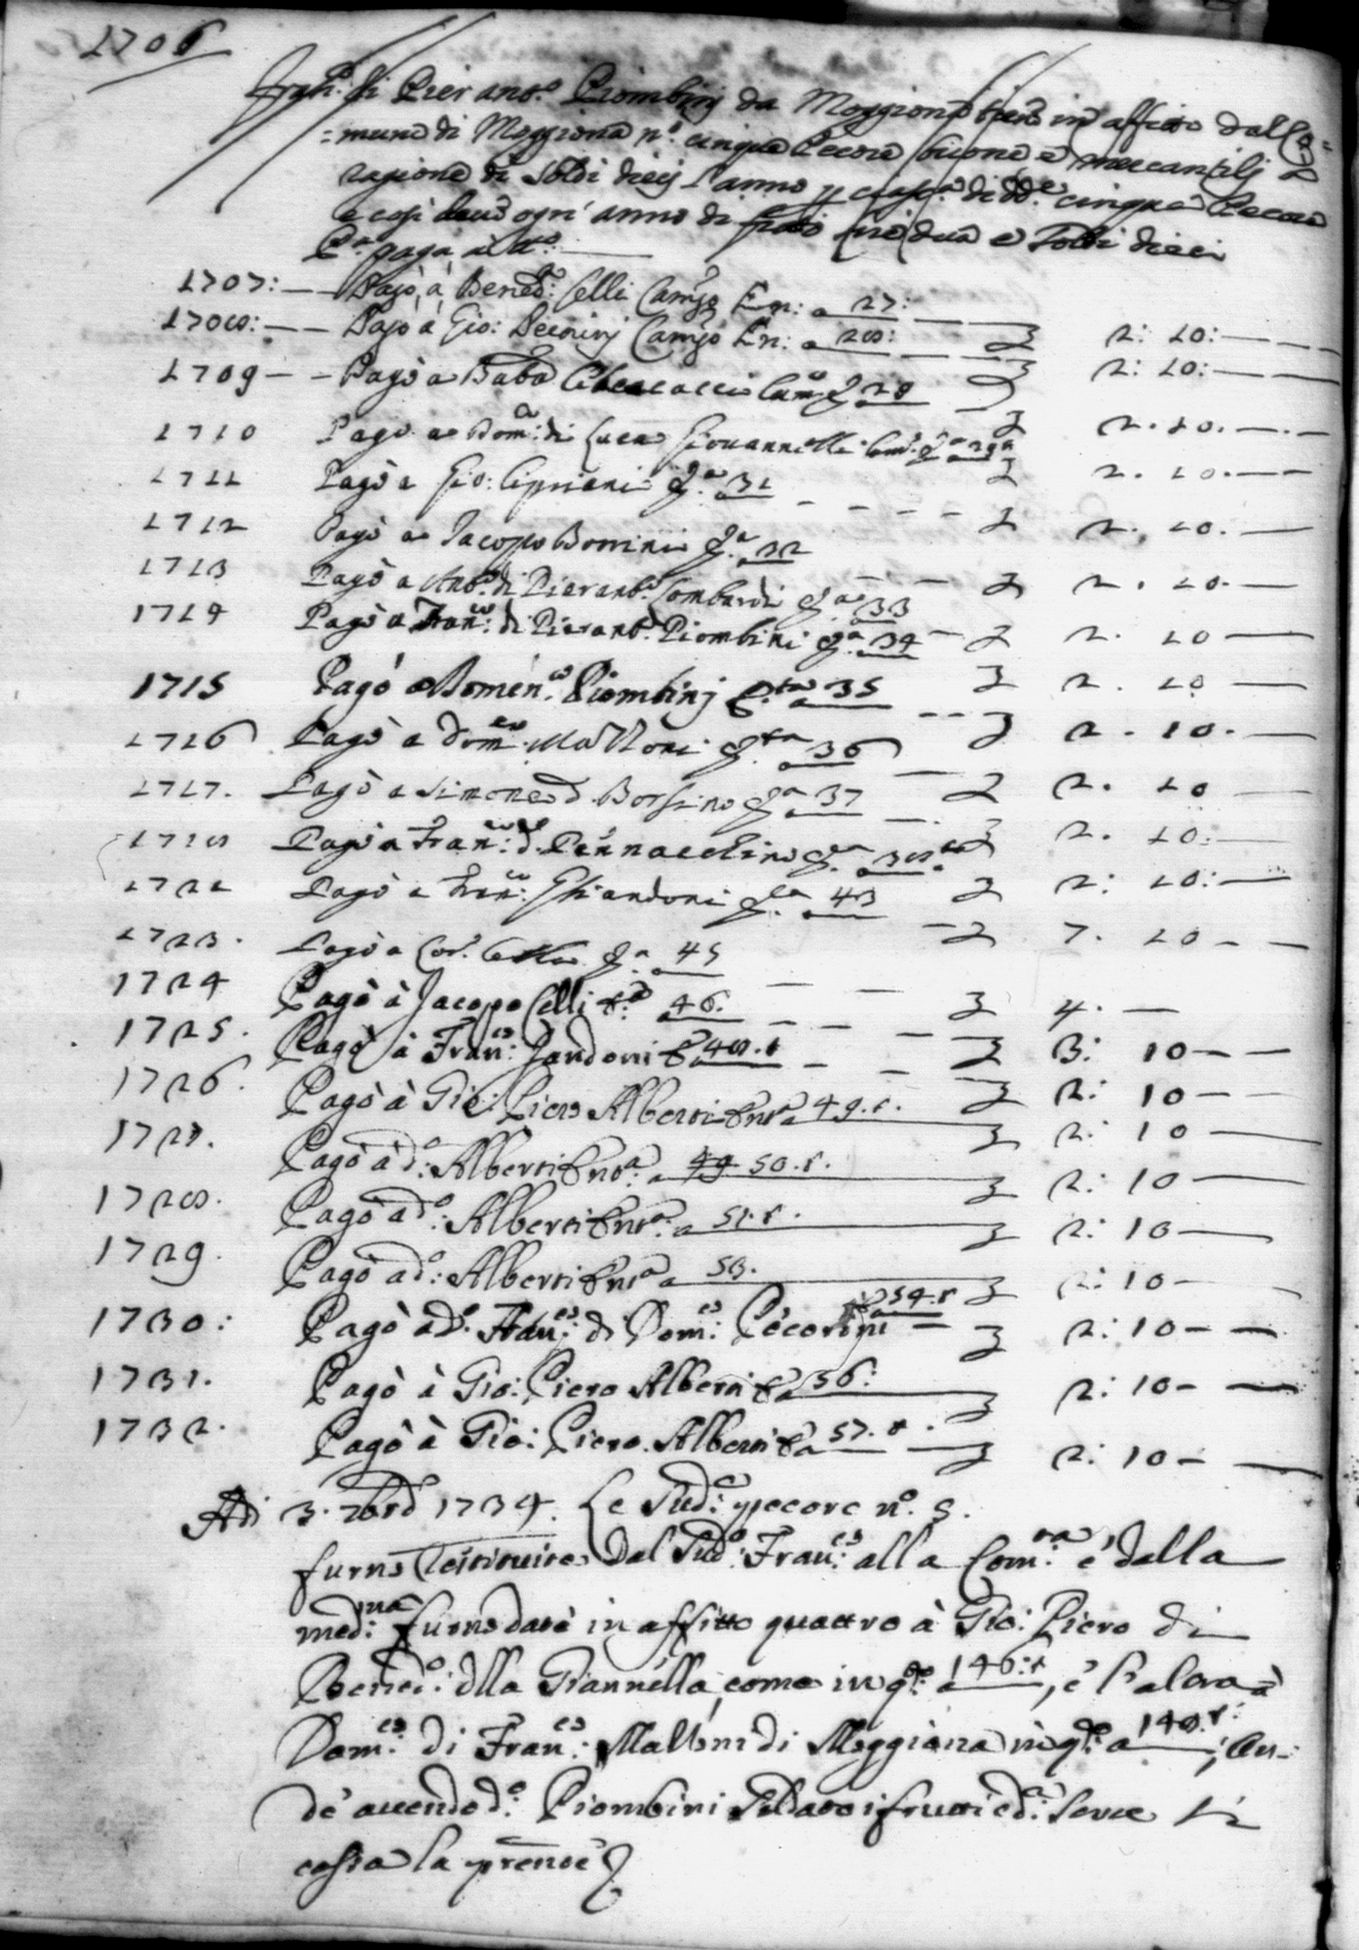 1706
Fran.co di Pier Ant.o Piombinj da Moggiona tiene in affitto dalla Co=
=mune di Moggiona n.o cinque Pecore buone e mercantilj à
ragione di Soldi diecj l'anno p ciasc.a di dd.e cinque Pecore
e così deue ogn'anno di fitto lire dua e soldi dieci
P.a paga à
1707: — — Pagò à Bened.o Celli Camg.o En: a 27: — — —
1708: — — Pagò à Gio: Pecorinj Camg.o En: a 28: — — — 2: 10: — —
1709 — — Pagò a Bab.a Cam.o q a 28 2: 10: — —
1710 Pagò a Dom.co di Luca Giouannelli Cam.o q.a a 29 2. 10. — . —
1711 Pagò a Gio: Cipriani q.a a 31 2. 10. — —
1712 Pagò a Jacopo Bonini q.a a 32 2. 10. —
1713 Pagò a Ant.o di Pierant.o Lombardi q.a a 33 2. 10. —
1714 Pagò a Fran.co di Pierant.o Piombini q.a a 34 2. 10 —
1715 Pagò a Domen.co Piombinj q.ta a 35 2. 10 —
1716 Pagò a Dom.co Malloni q.ta a 36 2. 10. —
1717. Pagò a Simone d. Borsino q.a a 37 2. 10 —
1718 Pagò a Fran.co d. Pennacchino q.a a 38 2. 10. —
1721 Pagò a Fran.co Ghiandoni q.a a 43 2: 10: —
1723. Pagò a q.a a 45 7. 10 — —
1724 Pagò à Jacopo Celli a 46. — — — 4. —
1725. Pagò à Fran.co Jandoni a 48.t 3: 10 — —
1726. Pagò à Gio: Piero Alberti n.to a 49.t. 2: 10 — —
1727. Pagò à d.o: Alberti n.to a 49 50.t. 2: 10 —
1728. Pagò a d.o: Alberti n.to a 51.t. 2: 10 —
1729. Pagò a d.o: Alberti n.to a 53. 2: 10 —
1730: Pagò a d.o Fran.co: di Dom.co: Pecorini a 54.t 2: 10 — —
1731. Pagò à Gio: Piero Alberti a 56: 2: 10 — —
1732. Pagò à Gio: Piero Alberti a 57.t. 2: 10 — —
Adì 3. 7bre 1734. Le Sud.e: pecore n.o. 5.
furno restituite dal Sud.o: Fran.co: alla Com.tà: e dalla
med.ma: furno date in affitto quattro à Gio: Piero di
Bened.o: dlla Giannella, come in q.to: a 146:t, e l'altra à
Dom.co: di Fran.co: Malloni di Moggiona in q.to: a 148.t: On=
de auendo d.o: Piombini Saldato i frutti e d.e: Serve si
cassa la prente